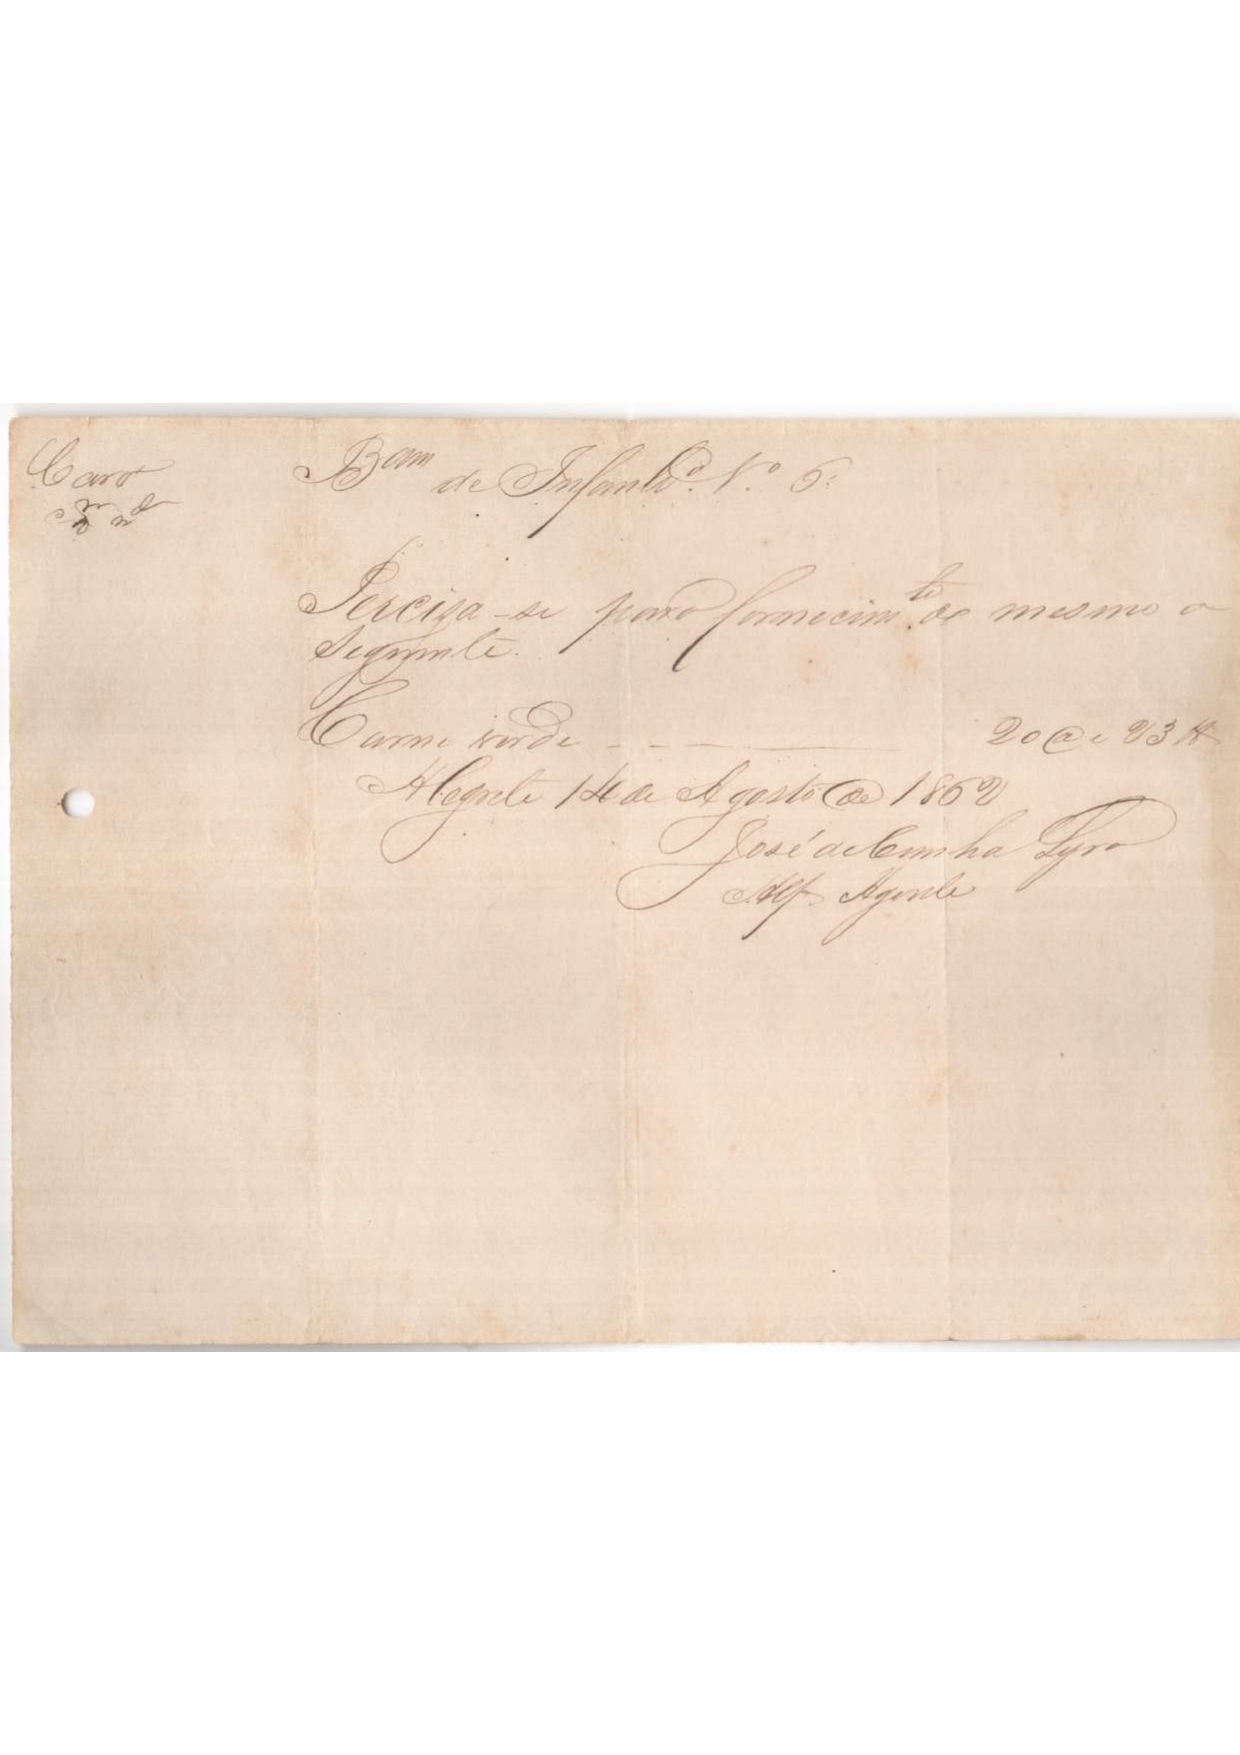 Bam de Infantra. No. 6:
Perciza-se para fornecimto. do mesmo o
Seguinte.
Carne verde - - - — 20 @ e 23 ℔
Alegrete 14 de Agosto de 1862
José da Cunha Lyra
Alfs. Agente